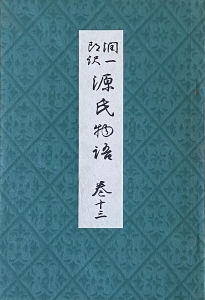 潤一
郎訳
源氏物語
巻十三